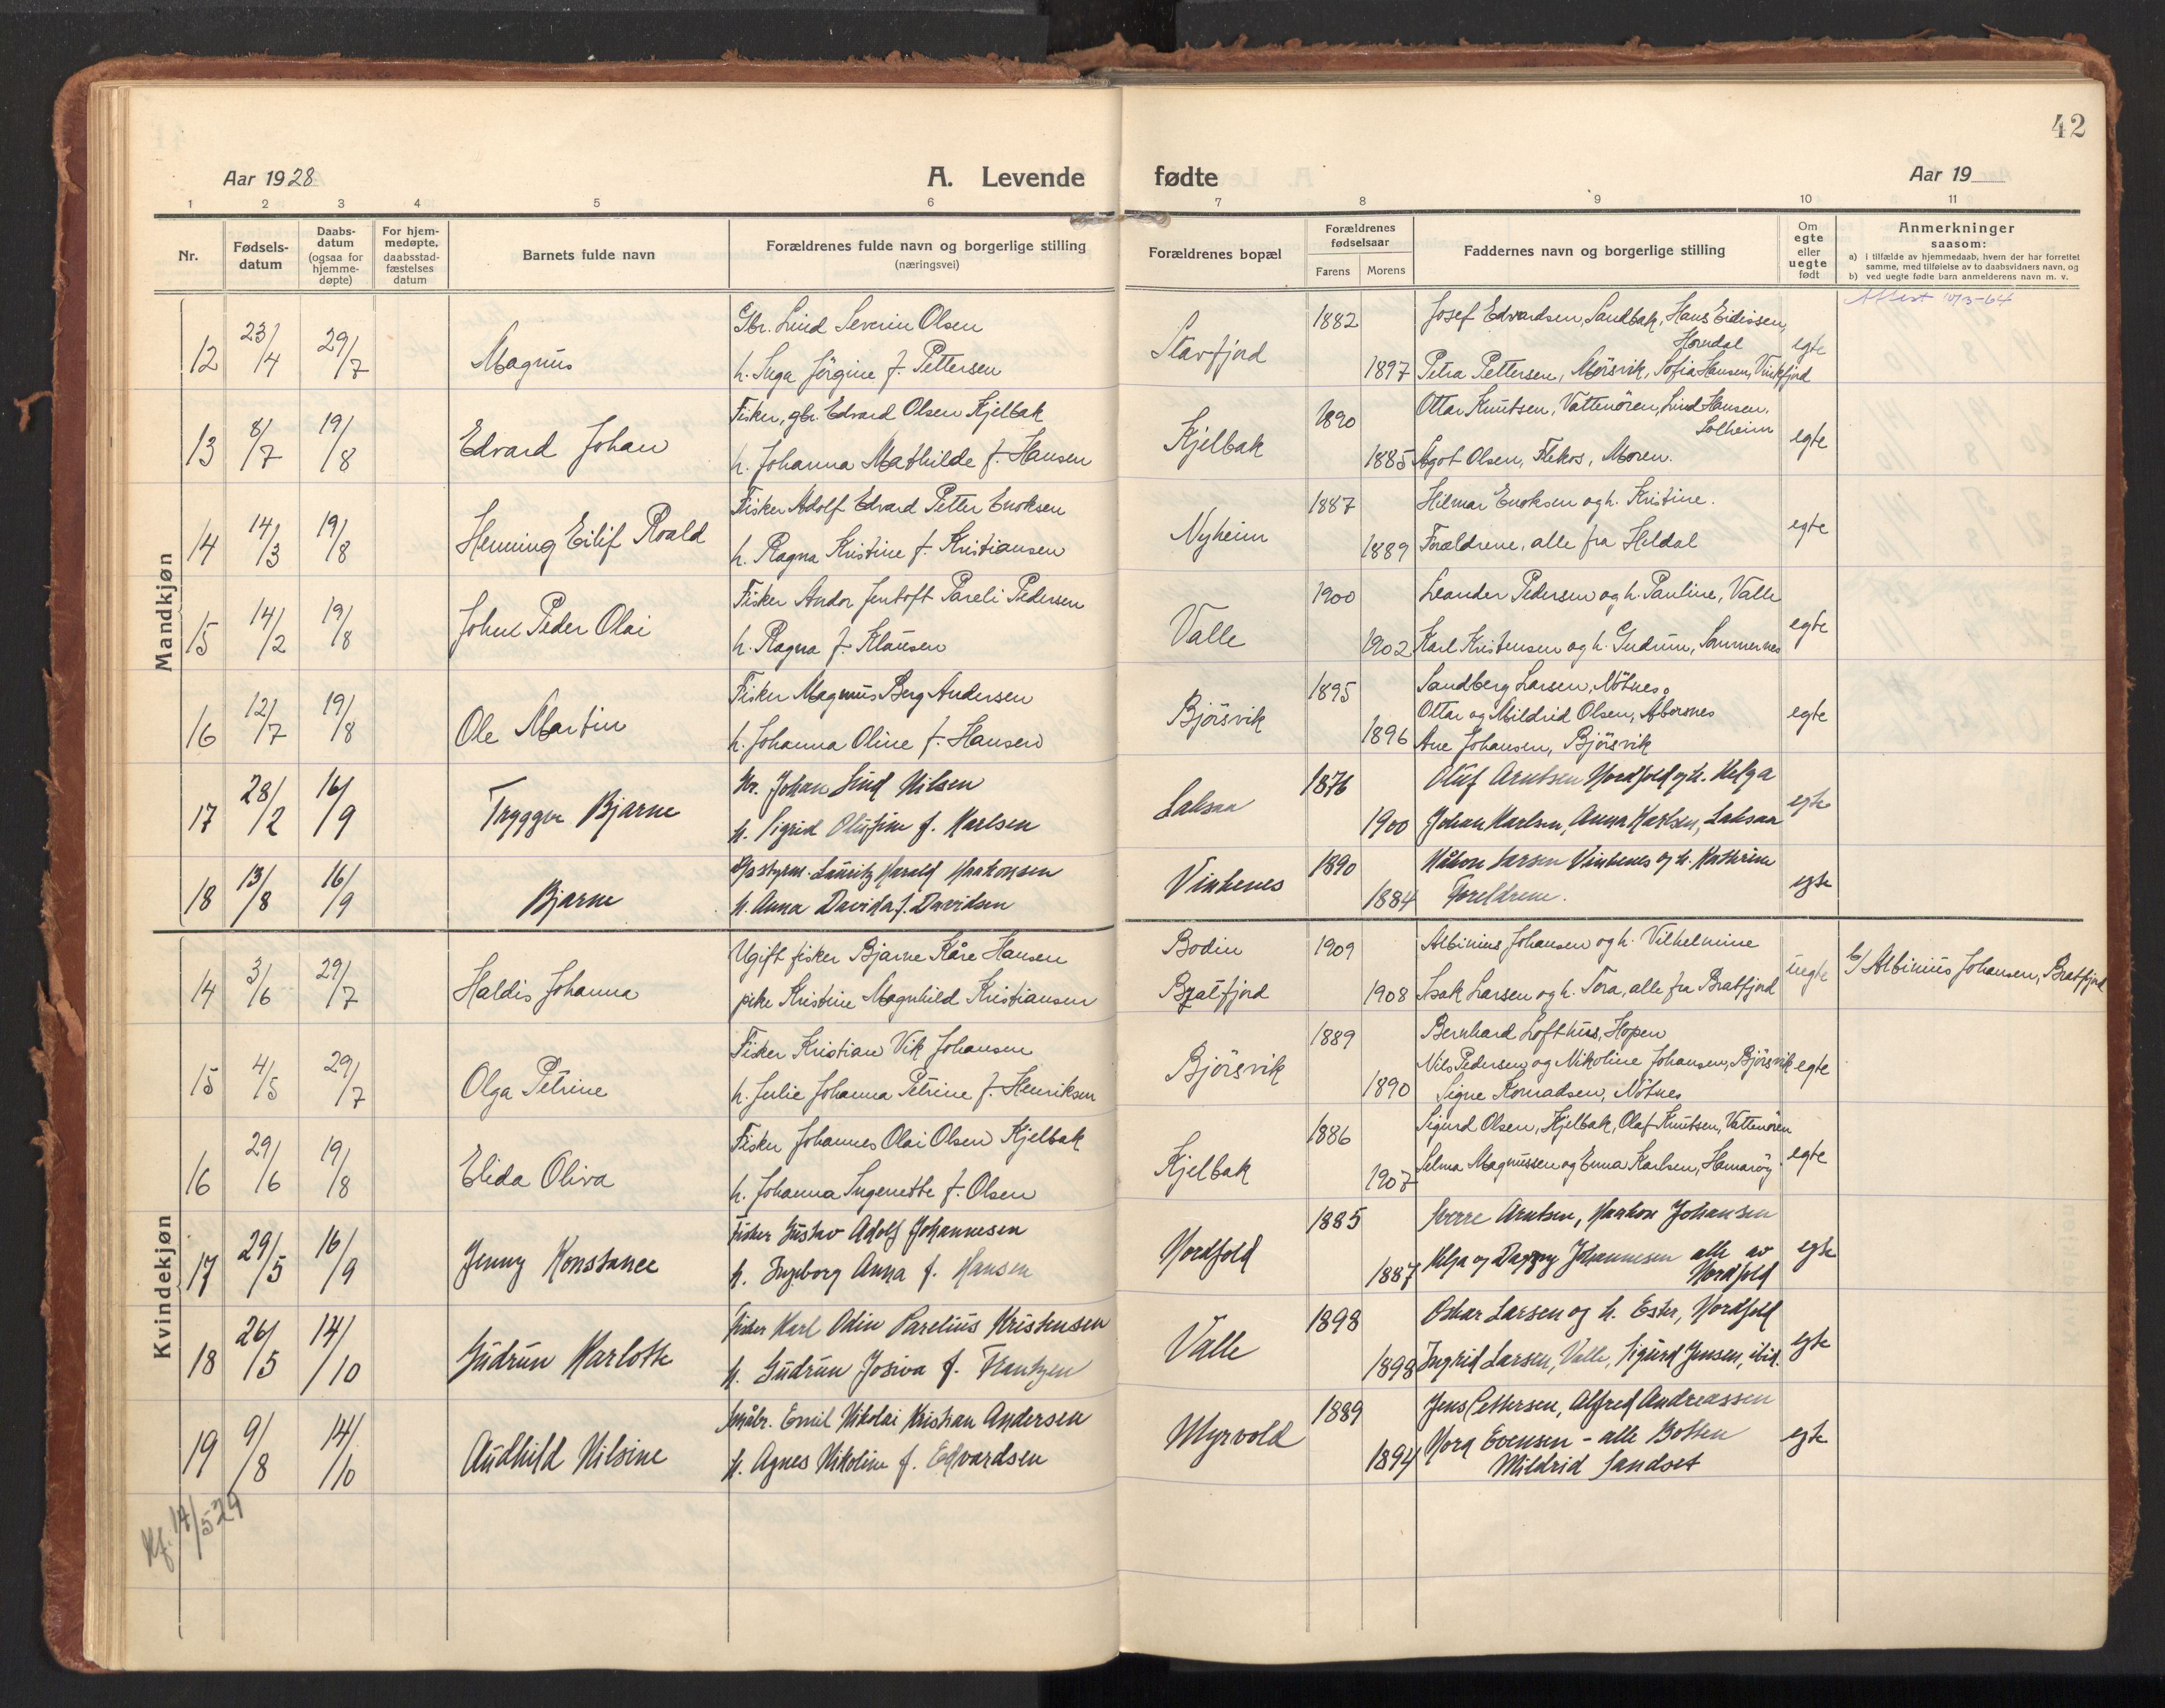 42
Aar 1928
A. Levende fødte
Aar 19
1 2 3 4 5 6 7 8 9 10 11
Nr.
Fødsels-
datum
Daabs-
datum
(ogsaa for
hjemme-
døpte)
For hjem-
medøpte,
daabsstad-
fæstelses
datum
Barnets fulde navn
Forældrenes fulde navn og borgerlige stilling
(næringsvei)
Forældrenes bopæl
Forældrenes
fødselsaar
Farens Morens
Faddernes navn og borgerlige stilling
Om
egte
eller
uegte
født
Anmerkninger
saasom:
a) i tilfælde av hjemmedaab, hvem der har forrettet
samme, med tilføielse av to daabsvidners navn, og
b) ved uegte fødte barn anmelderens navn m. v.
Mandkjøn
Attest 10/3-64
12 23/4 29/7 Magnus
Gbr. Lind Severin Olsen
h. Inga Jörgine f. Pettersen
Stavfjord 1882 1897
Josef Edvardsen, Sandbak, Hans Eidissen,
Horndal
Petra Pettersen, Mörsvik, Sofia Hansen, Vinkfjord
egte
13 8/7 19/8 Edvard Johan
Fisker, gbr. Edvard Olsen Kjelbak
h. Johanna Mathilde f. Hansen
Kjelbak 1890 1885
Ottar Knutsen, Vattenören, Lind Hansen,
Solheim
Agot Olsen, Flekos, Moren.
egte
14 14/3 19/8 Henning Eilif Roald
Fisker Adolf Edvard Petter Enoksen
h. Ragna Kristine f. Kristiansen
Nyheim 1887 1889
Hilmar Enoksen og h. Kristine.
Forældrene, alle fra Heldal
egte
15 14/2 19/8 Johne Peder Olai
Fisker Andor Jentoft Pareli Pedersen
h. Ragna f. Klausen
Valle 1900 1902
Leander Pedersen og h. Pauline, Valle
Karl Kristensen og h. Gudrun, Sommernes
egte
16 12/7 19/8 Ole Martin
Fisker Magnus Berg Andersen
h. Johanna Oline f. Hansen
Björsvik 1895 1896
Sandberg Larsen, Nötnes.
Ottar og Mildrid Olsen, Abornes
Ane Johansen, Björsvik
egte
17 28/2 16/9 Tryggve Bjarne
Gbr. Johan Lind Nilsen
h. Sigrid Olufine f. Karlsen
Laksaa 1876 1900
Oluf Arntsen Nordfold og h. Helga
Johan Karlsen, Anna Karlsen, Laksaa
egte
18 13/8 16/9 Bjarne
Lauritz Harald Haakonsen
h. Anna Davida f. Davidsen
Vinkenes 1890 1884
Håkon Larsen Vinkenes og h. Kathrine
Foreldrene.
egte
Kvindekjøn
14 3/6 29/7 Haldis Johanna
Ugift fisker Bjarne Kåre Hansen
pike Kristine Magnhild Kristiansen
Bodin
Bratfjord 1909 1908
Albinius Johansen og h. Vilhelmine
Isak Larsen og h. Tora, alle fra Bratfjord
uegte
b/ Albinius Johansen, Bratfjord
15 4/5 29/7 Olga Petrine
Fisker Kristian Vik Johansen
h. Julie Johanna Petrine f. Henriksen
Björsvik 1889 1890
Bernhard Lofthus, Hopen
Nils Pedersen og Nikoline Johansen, Björsvik
Signe Konradsen, Nötnes
egte
16 29/6 19/8 Elida Oliva
Fisker Johannes Olai Olsen Kjelbak
h. Johanna Ingenette f. Olsen
Kjelbak 1886 1907
Sigurd Olsen, Kjelbak, Olaf Knutsen, Vattenören
Selma Magnussen og Emma Karlsen, Hamaröy
egte
17 29/5 16/9 Jenny Konstance
Fisker Gustav Adolf Johannesen
h. Ingeborg Anna f. Hansen
Nordfold 1885 1887
Sverre Arntsen, Haakon Johansen
Helga og Dagny Johannesen alle av
Nordfold
egte
18 26/5 14/10 Gudrun Karlotte
Fisker Karl Odin Parelius Kristensen
h. Gudrun Josiva f. Frantzen
Valle 1898 1898
Oskar Larsen og h. Ester, Nordfold
Ingrid Larsen, Valle, Sigurd Jensen, ibid.
egte
19 9/8 14/10 Audhild Nilsine
Småbr. Emil Nikolai Kristian Andersen
h. Agnes Nikoline f. Edvardsen
Myrvold 1889 1894
Jens Pettersen, Alfred Andreassen
Nora Evensen - alle Botten
Mildrid Sandset
egte
Kf. 14/5 29